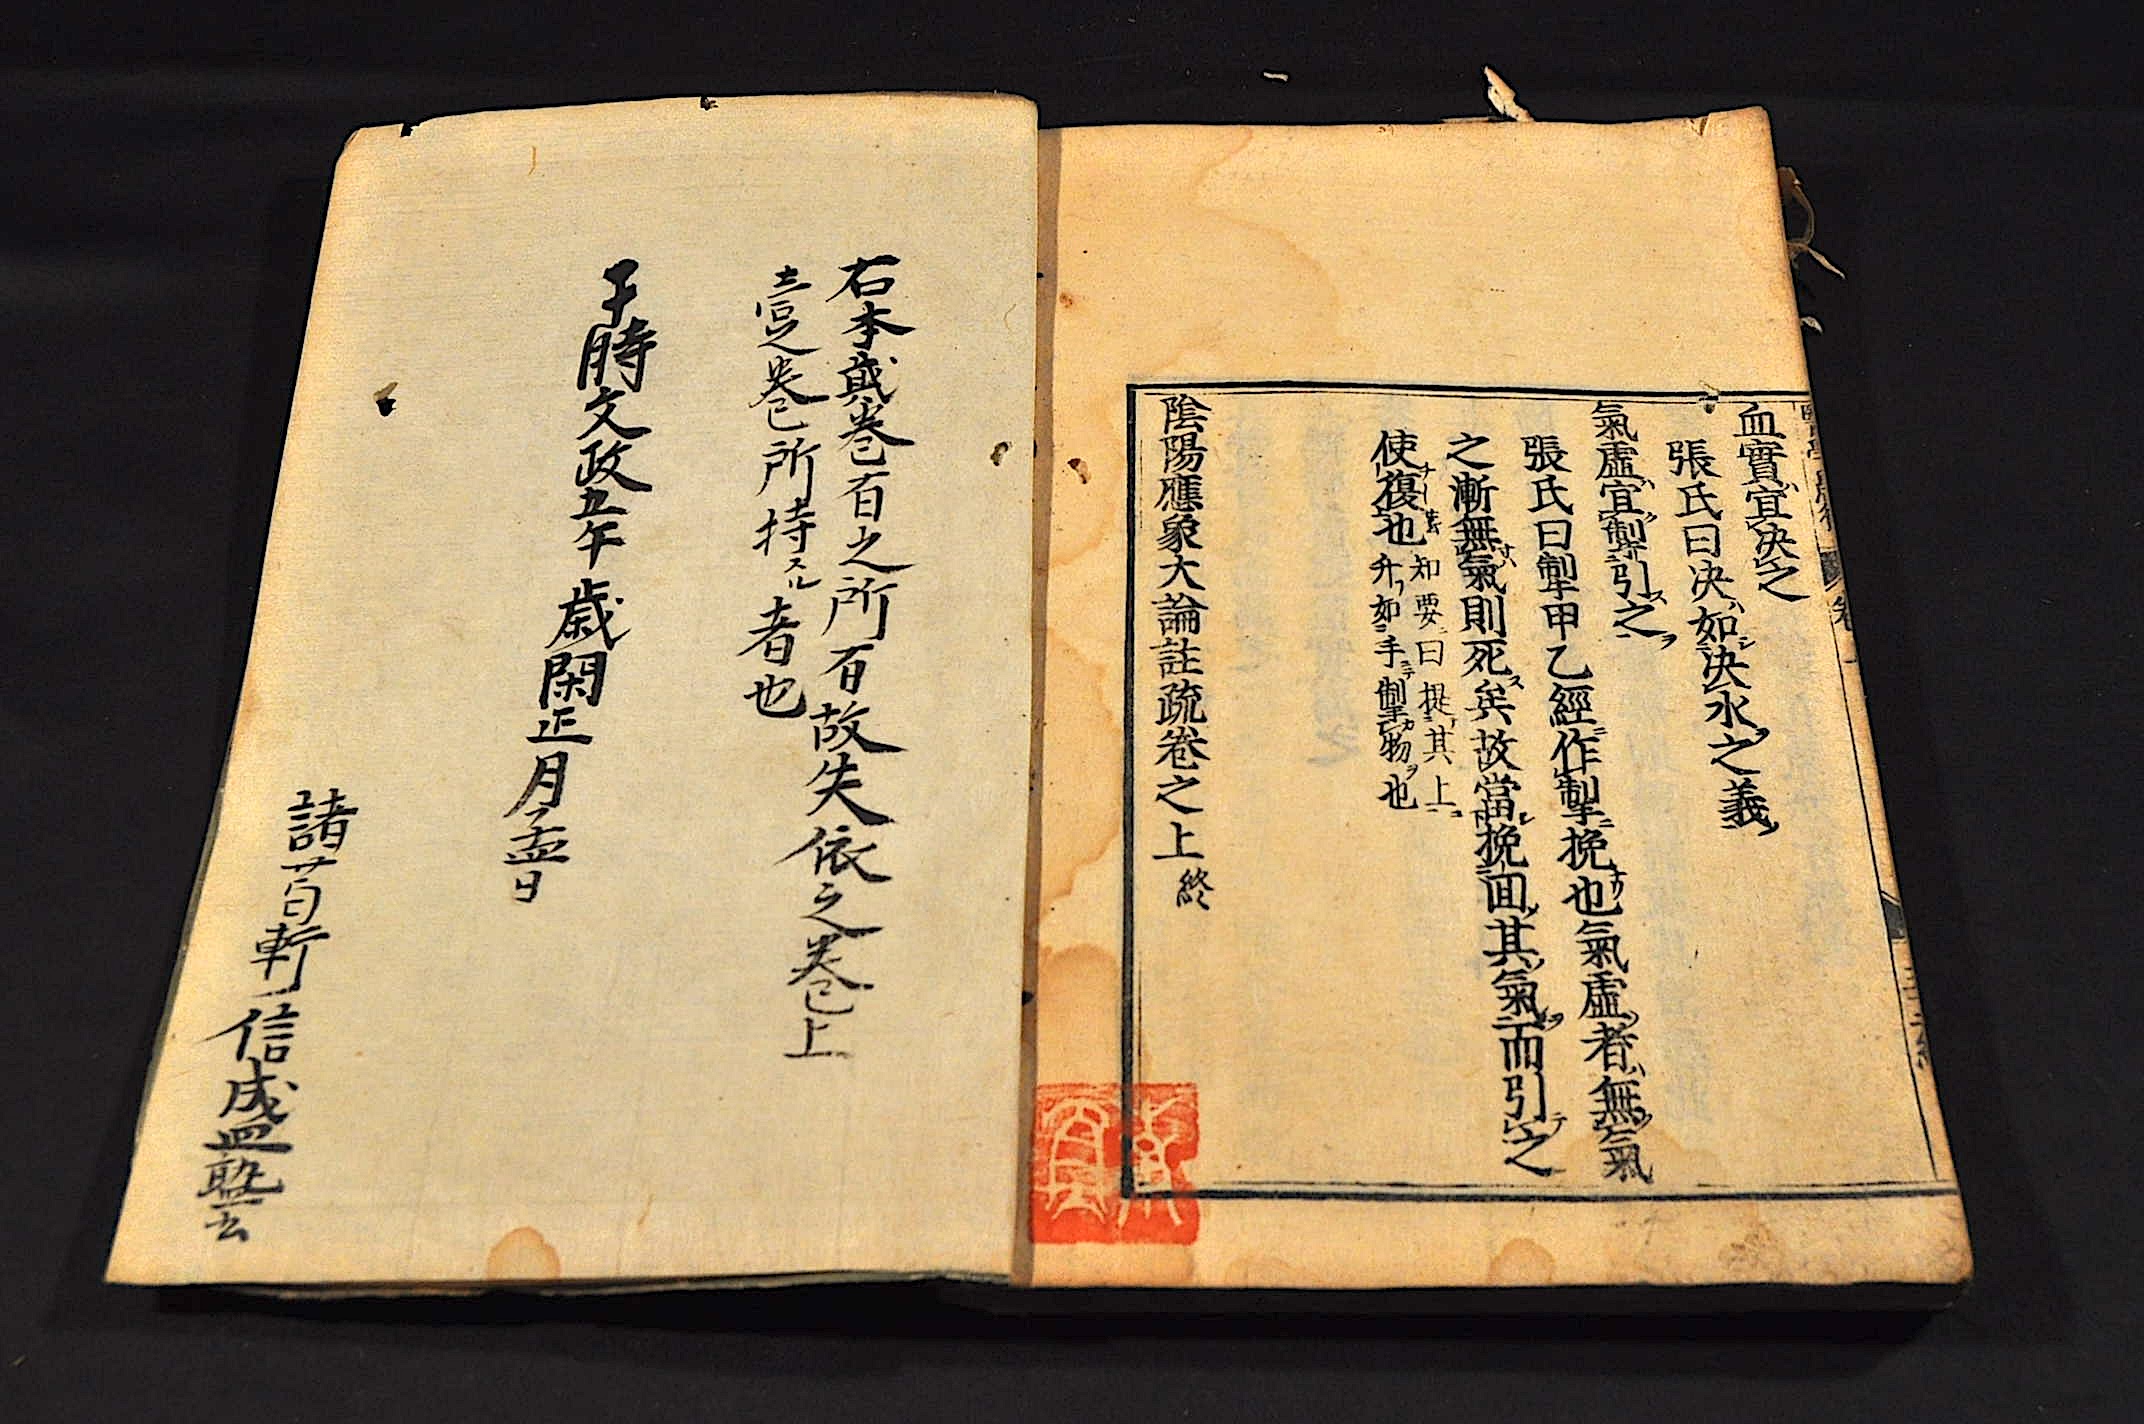 血實宜決之
張氏曰決如決水之義
氣虛宜掣引之
張氏曰掣甲乙經作掣挽也氣虛者無氣
之漸無氣則死矣故當挽回其氣而引之
使復也
知要曰提其上
升如手掣物也
陰陽應象大論註疏卷之上終
右本貳卷有之所有故失依之卷上
壹之卷所持スル者也
于時文政五午歲閏正月盃日
諸
軒信成